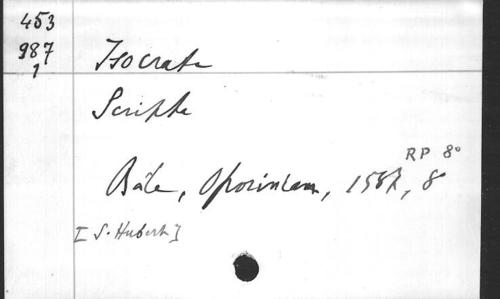 453
987
1
Isocrate
Scripta
RP 8°
Bâle, Oporinus, 8°
[S. Hubert]